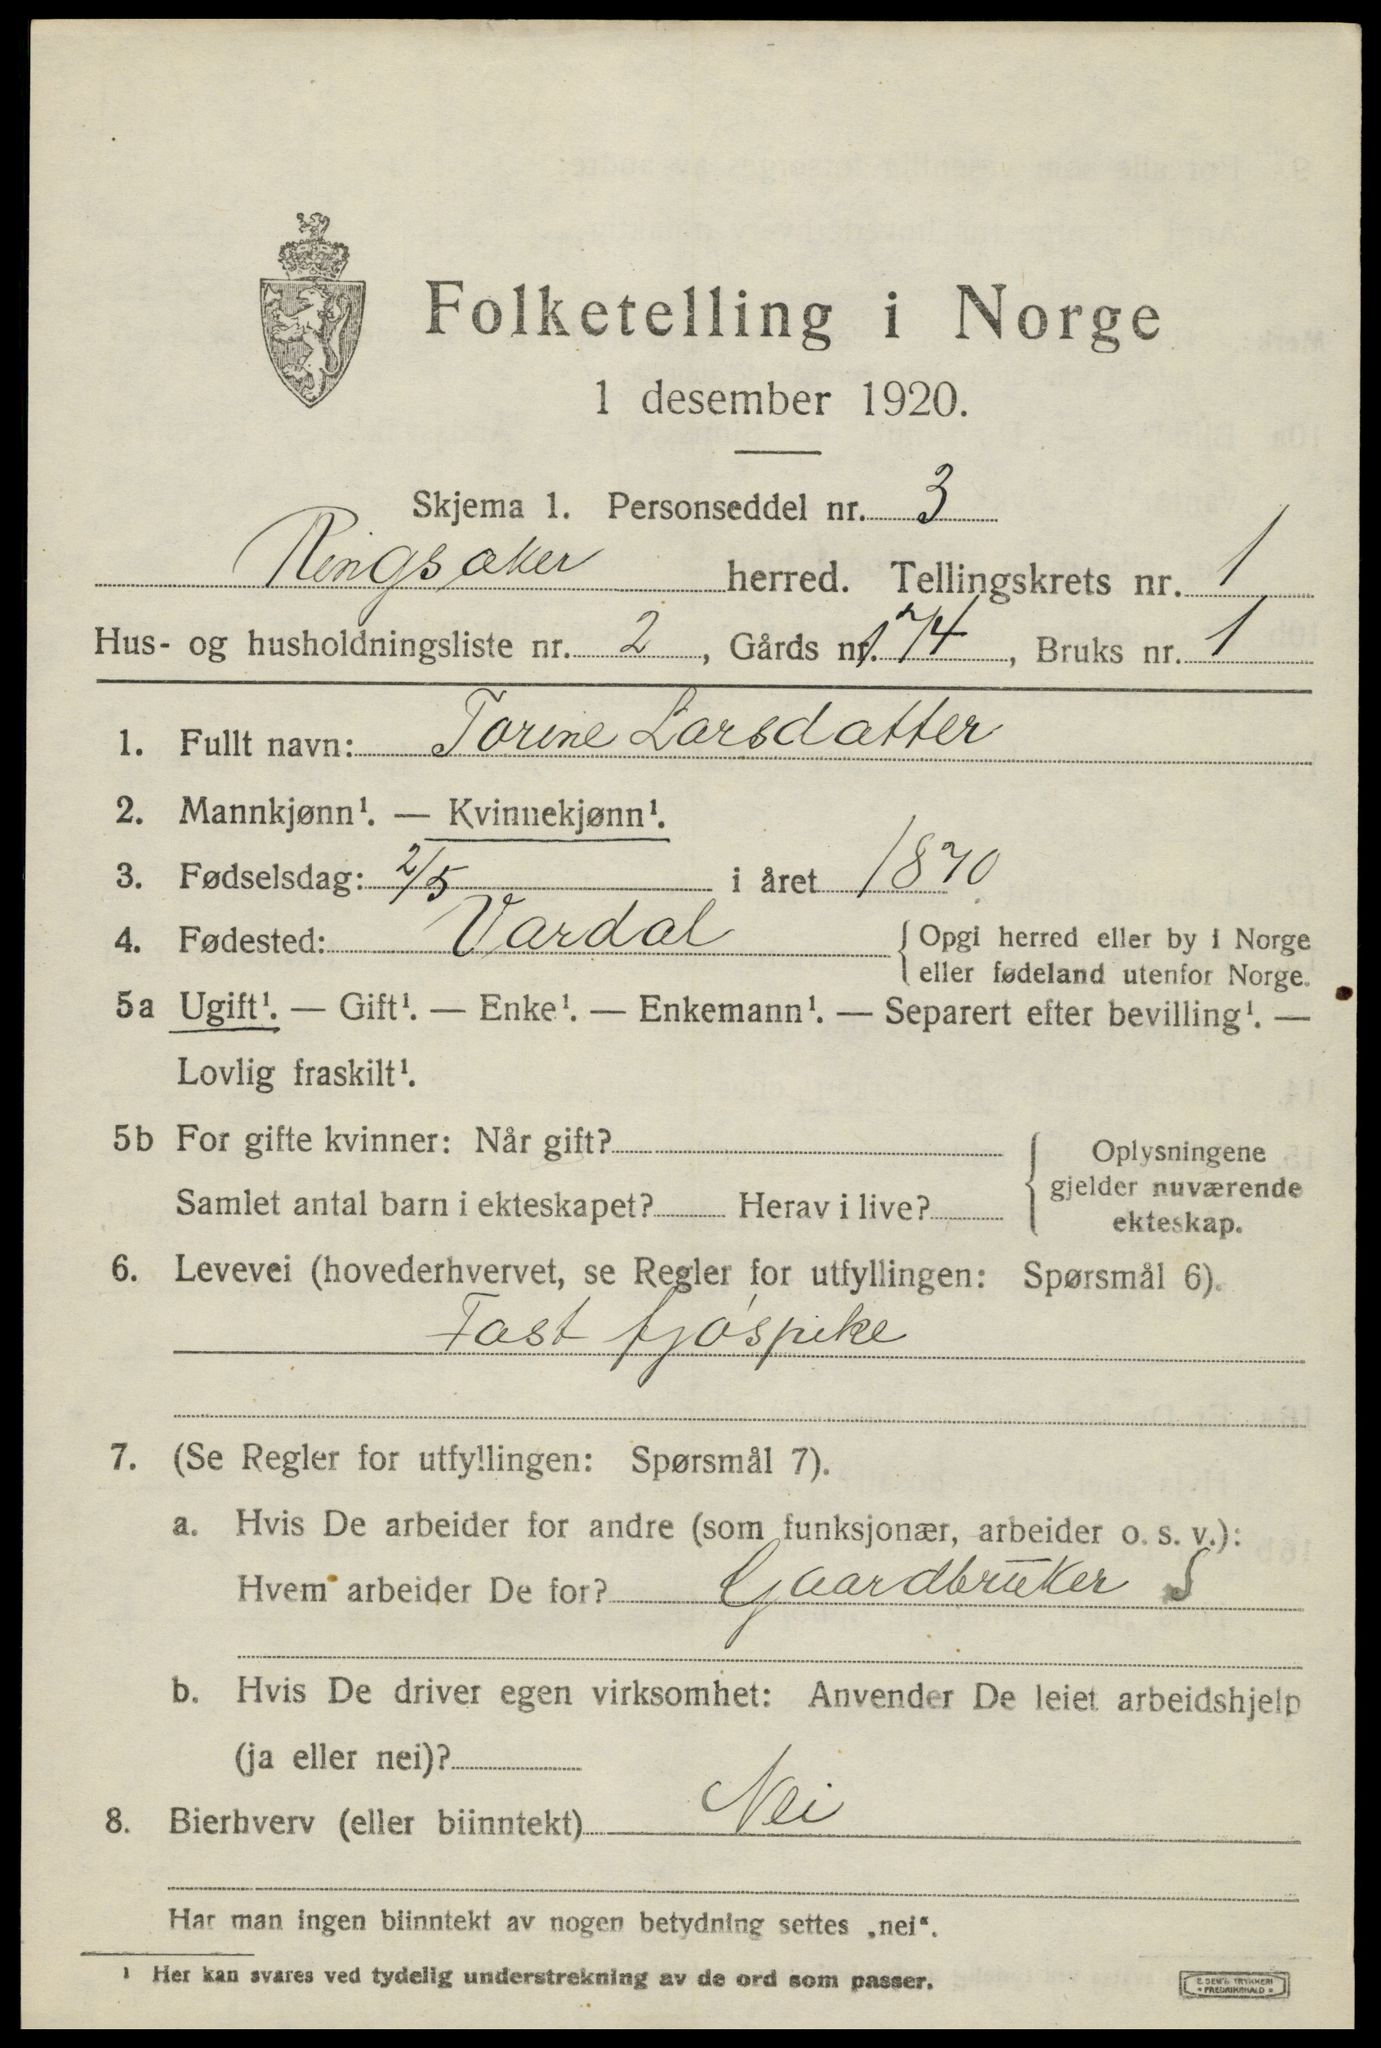 Folketelling i Norge
1 desember 1920.
Skjema 1. Personseddel nr. 3
Ringsaker herred. Tellingskrets nr. 1
Hus- og husholdningsliste nr. 2, Gårds nr. 174, Bruks nr. 1
1. Fullt navn: Torine Larsdatter
2. Mannkjønn¹. — Kvinnekjønn¹.
3. Fødselsdag: 2/5 i året 1870
4. Fødested: Vardal {Opgi herred eller by i Norge
eller fødeland utenfor Norge.
5a Ugift¹. — Gift¹. — Enke¹. — Enkemann¹. — Separert efter bevilling¹. —
Lovlig fraskilt¹.
5b For gifte kvinner: Når gift?
Samlet antal barn i ekteskapet? Herav i live?
Oplysningene
gjelder nuværende
ekteskap.
6. Levevei (hovederhvervet, se Regler for utfyllingen: Spørsmål 6).
Fast fjøspike
7. (Se Regler for utfyllingen: Spørsmål 7).
a. Hvis De arbeider for andre (som funksjonær, arbeider o. s. v.):
Hvem arbeider De for? Gaardbruker S
b. Hvis De driver egen virksomhet: Anvender De leiet arbeidshjelp
(ja eller nei)?
8. Bierhverv (eller biinntekt) Nei
Har man ingen biinntekt av nogen betydning settes „nei“.
¹ Her kan svares ved tydelig understrekning av de ord som passer.
E. SEM's TRYKKERI
FREDRIKSHALD